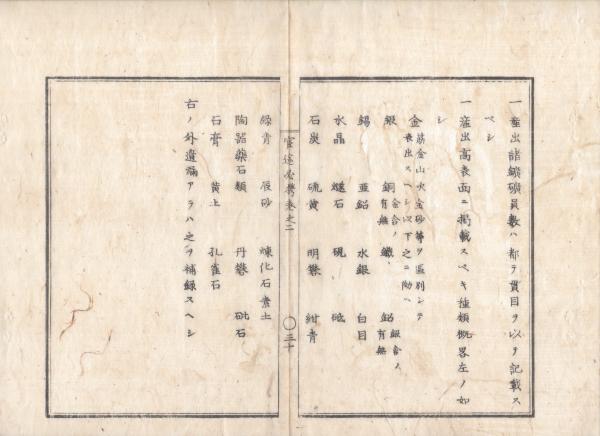 一産出諸鑛礦員數ハ都テ貫目ヲ以テ記載ス
ベシ
一産出高表面ニ掲載スベキ種類概畧左ノ如
シ
金 筋金山火金砂等ヲ區別シテ
表出スヘシ以下之ニ倣ヘ
銀 銅 金合ノ有無 鐵 鉛 銀合ノ有無
錫 亜鉛 水銀 白目
水晶 燧石 硯 砥
石炭 硫黄 明礬 紺青
緑青 辰砂 煉化石素土
陶器藥石類 丹礬 砒石
石膏 黄土 孔雀石
右ノ外遺漏アラハ之ヲ補録スヘシ
官途必携巻之二
〇三十